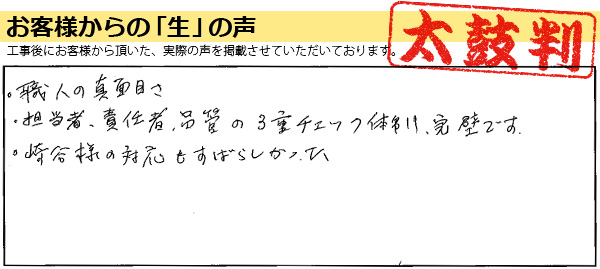 お客様からの「生」の声
工事後にお客様から頂いた、実際の声を掲載させていただいております。
太鼓判
。職人の真面目さ
・担当者、責任者、品管の3重チェック体制は、完璧です.
。崎谷様の対応もすばらしかった